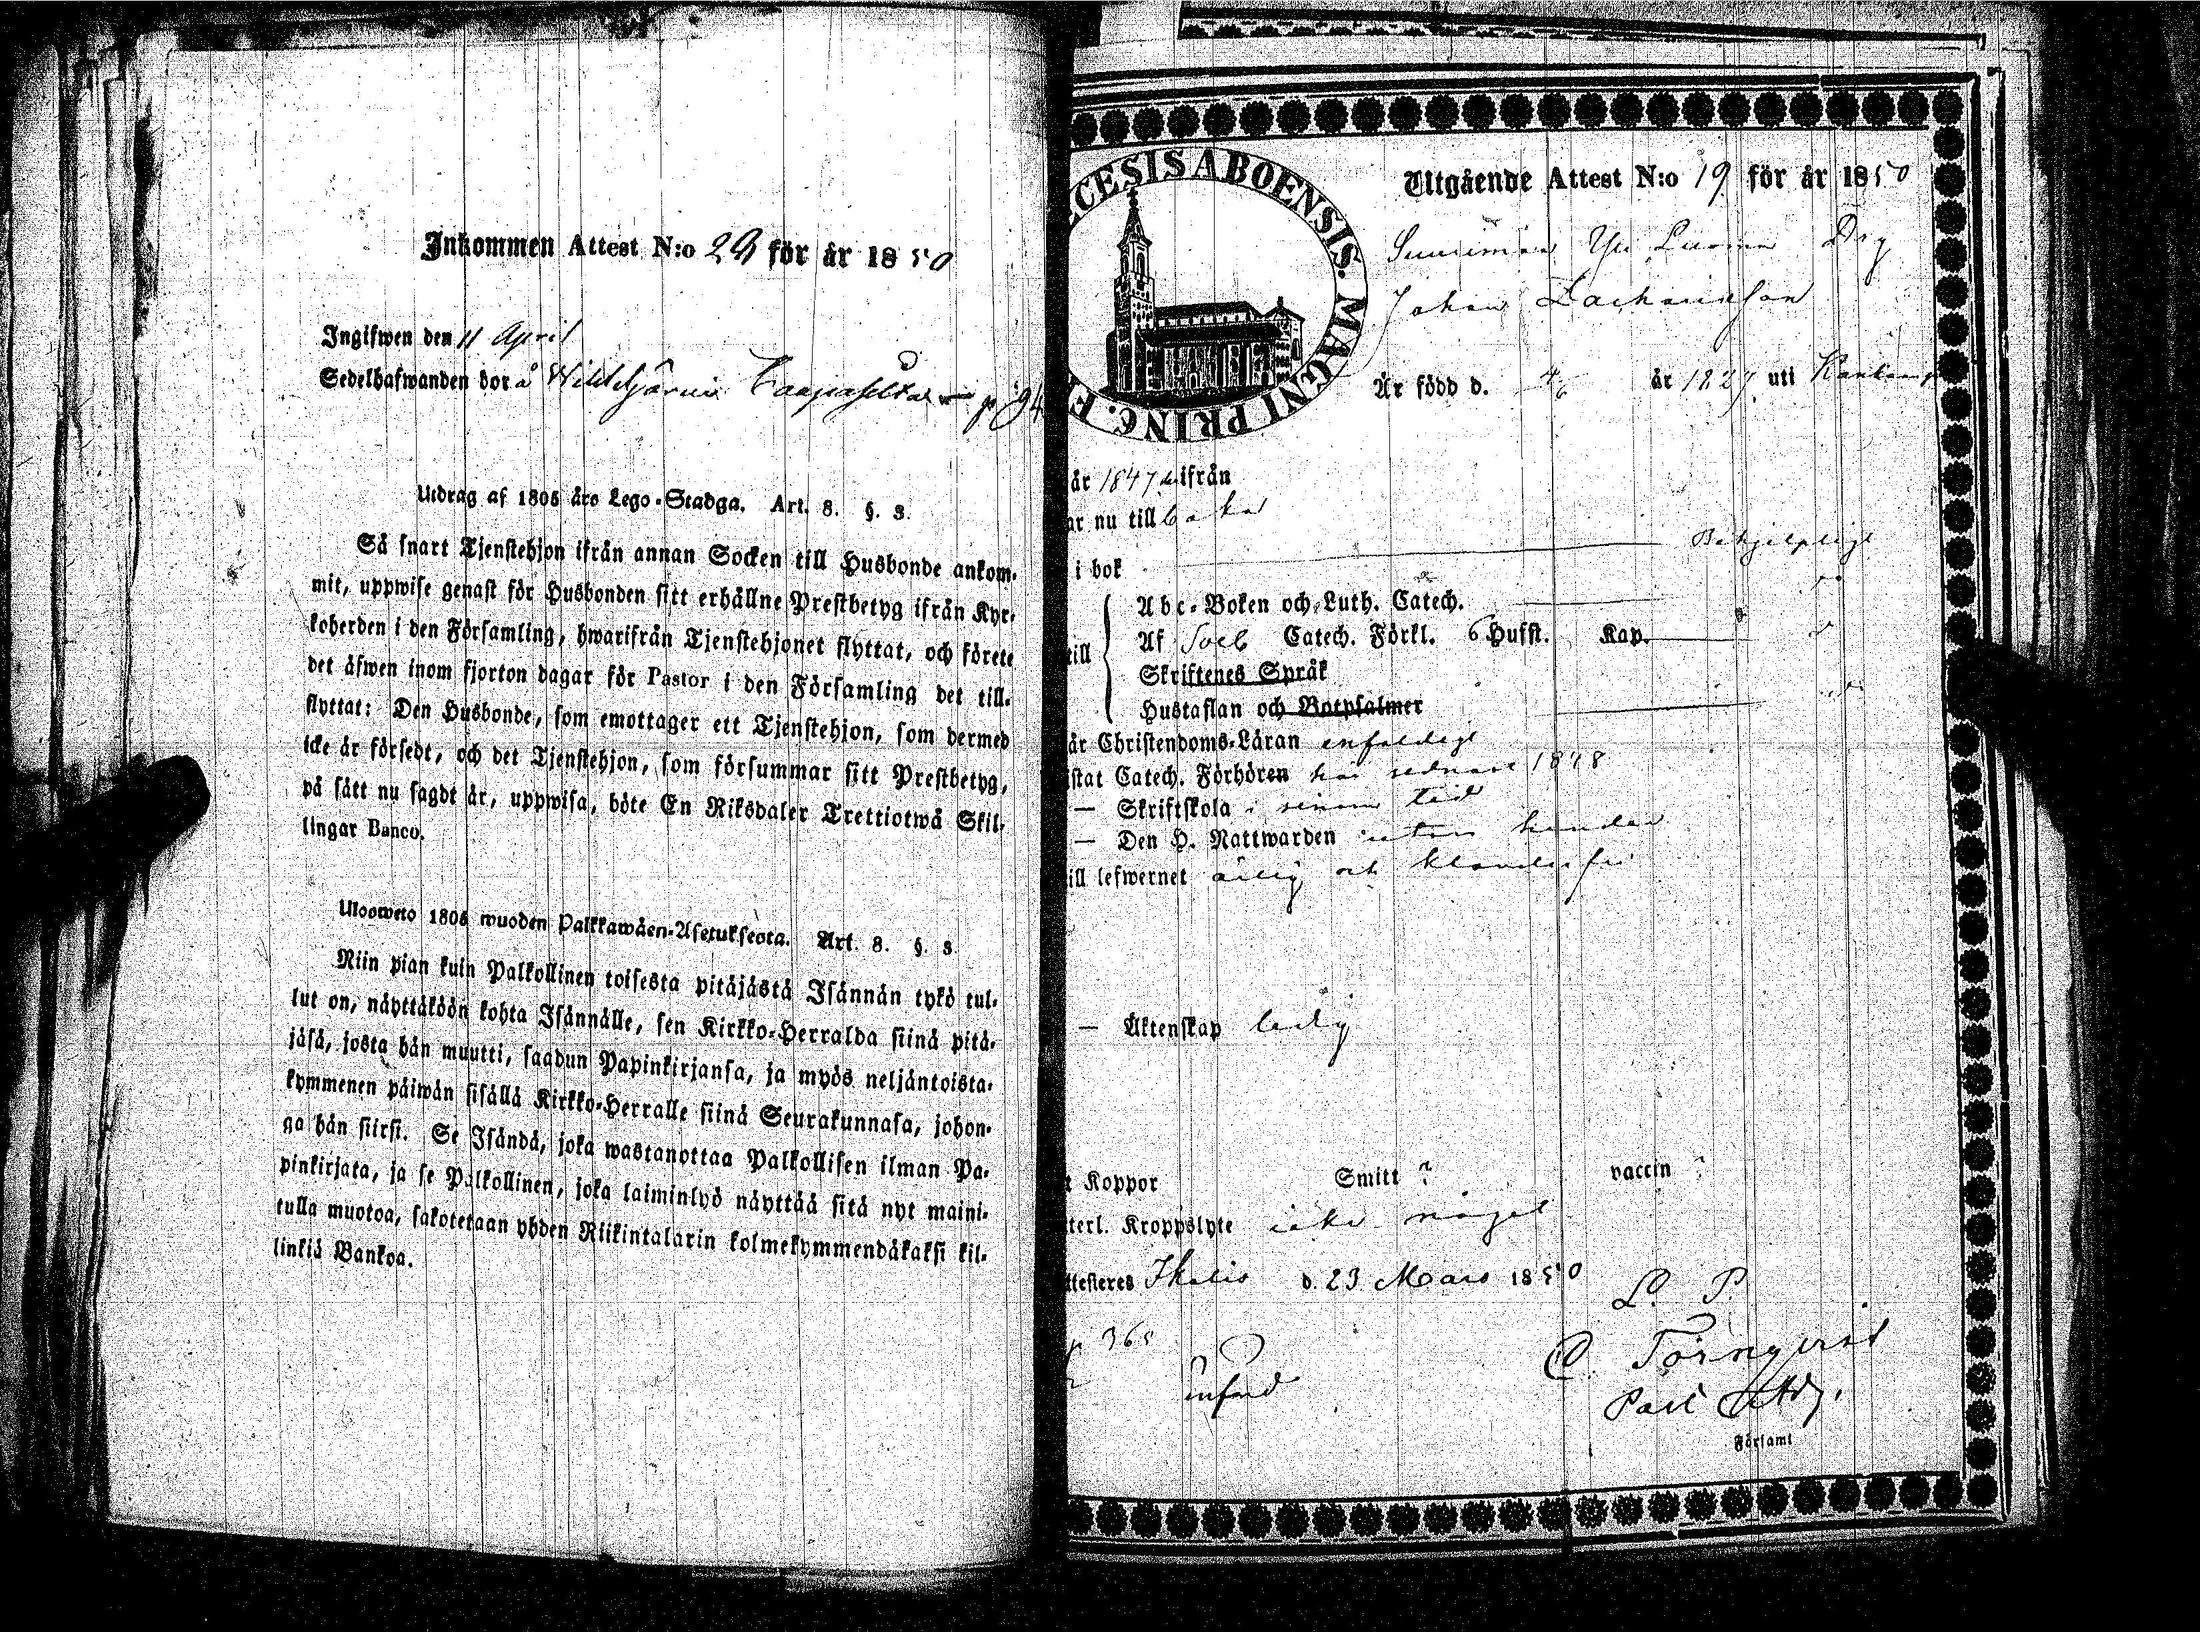 Inkommen Attest N:o 29 för år 1850
Ingifwen den 11 April
Sedelhafwanden bor å
Utdrag af 1805 års Lego-Stadga. Art. 8. §. 3.
Så snart Tjenstehjon ifrån annan Socken till Husbonde ankom-
mit, uppwise genast för Husbonden sitt erhållne Prestbetyg ifrån Kyr-
koherden i den Församling, hwarifrån Tjenstehjonet flyttat, och förete
det äfwen inom fjorton dagar för Pastor i den Församling det till-
flyttat: Den Husbonde, som emottager ett Tjenstehjon, som dermed
icke är försedt, och det Tjenstehjon, som försummar sitt Prestbetyg,
på sätt nu sagdt är, uppwisa, böte En Riksdaler Trettiotwå Skil-
lingar Banco.
Uloosweto 1805 wuoden Palkkawäen-Asetuksesta. Art. 8. §. 3.
Niin pian kuin Palkollinen toisesta pitäjästä Isännän tykö tul-
lut on, näyttäköön kohta Isännälle, sen Kirkko-Herralda siinä pitä-
jäsä, josta hän muutti, saadun Papinkirjansa, ja myös neljäntoista-
kymmenen päiwän sisällä Kirkko-Herralle siinä Seurakunnasa, johon-
ga hän siirsi. Se Isändä, joka wastanottaa Palkollisen ilman Pa-
pinkirjata, ja se Palkollinen, joka laiminlyö näyttää sitä nyt maini-
tulla muotoa, sakotetaan yhden Riikintalarin kolmekymmendäkaksi kil-
linkiä Bankoa.
CESIS ABOENSIS. MAGNI PRINC. F
Utgående Attest N:o 19 för år 1850
Drg
Johan Zachariasson
Är född d. 4/6 år 1827 uti
år 1847 ifrån
ar nu tillbaka
i bok
Abc-Boken och Luth. Catech.
till
Af Catech. Förkl. 6 Hufst. Kap.
Skriftenes Språk
Hustaflan och Botpsalmer
år Christendoms-Läran enfaldigt
istat Catech. Förhören har sednast 1848
— Skriftskola i sinom tid
— Den H. Nattwarden utan hinder
ill lefwernet ärlig och klanderfri
— Äktenskap ledig
t Koppor Smitt ? vaccin ?
terl. Kroppslyte icke något
ttesteres Ikalis d. 23 Mars 1850
L. P.
365
infört
C. Törnqvist
Past Adj.
Församl